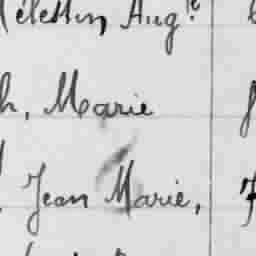 Célestin Aug.te
h, Marie
Jean Marie,